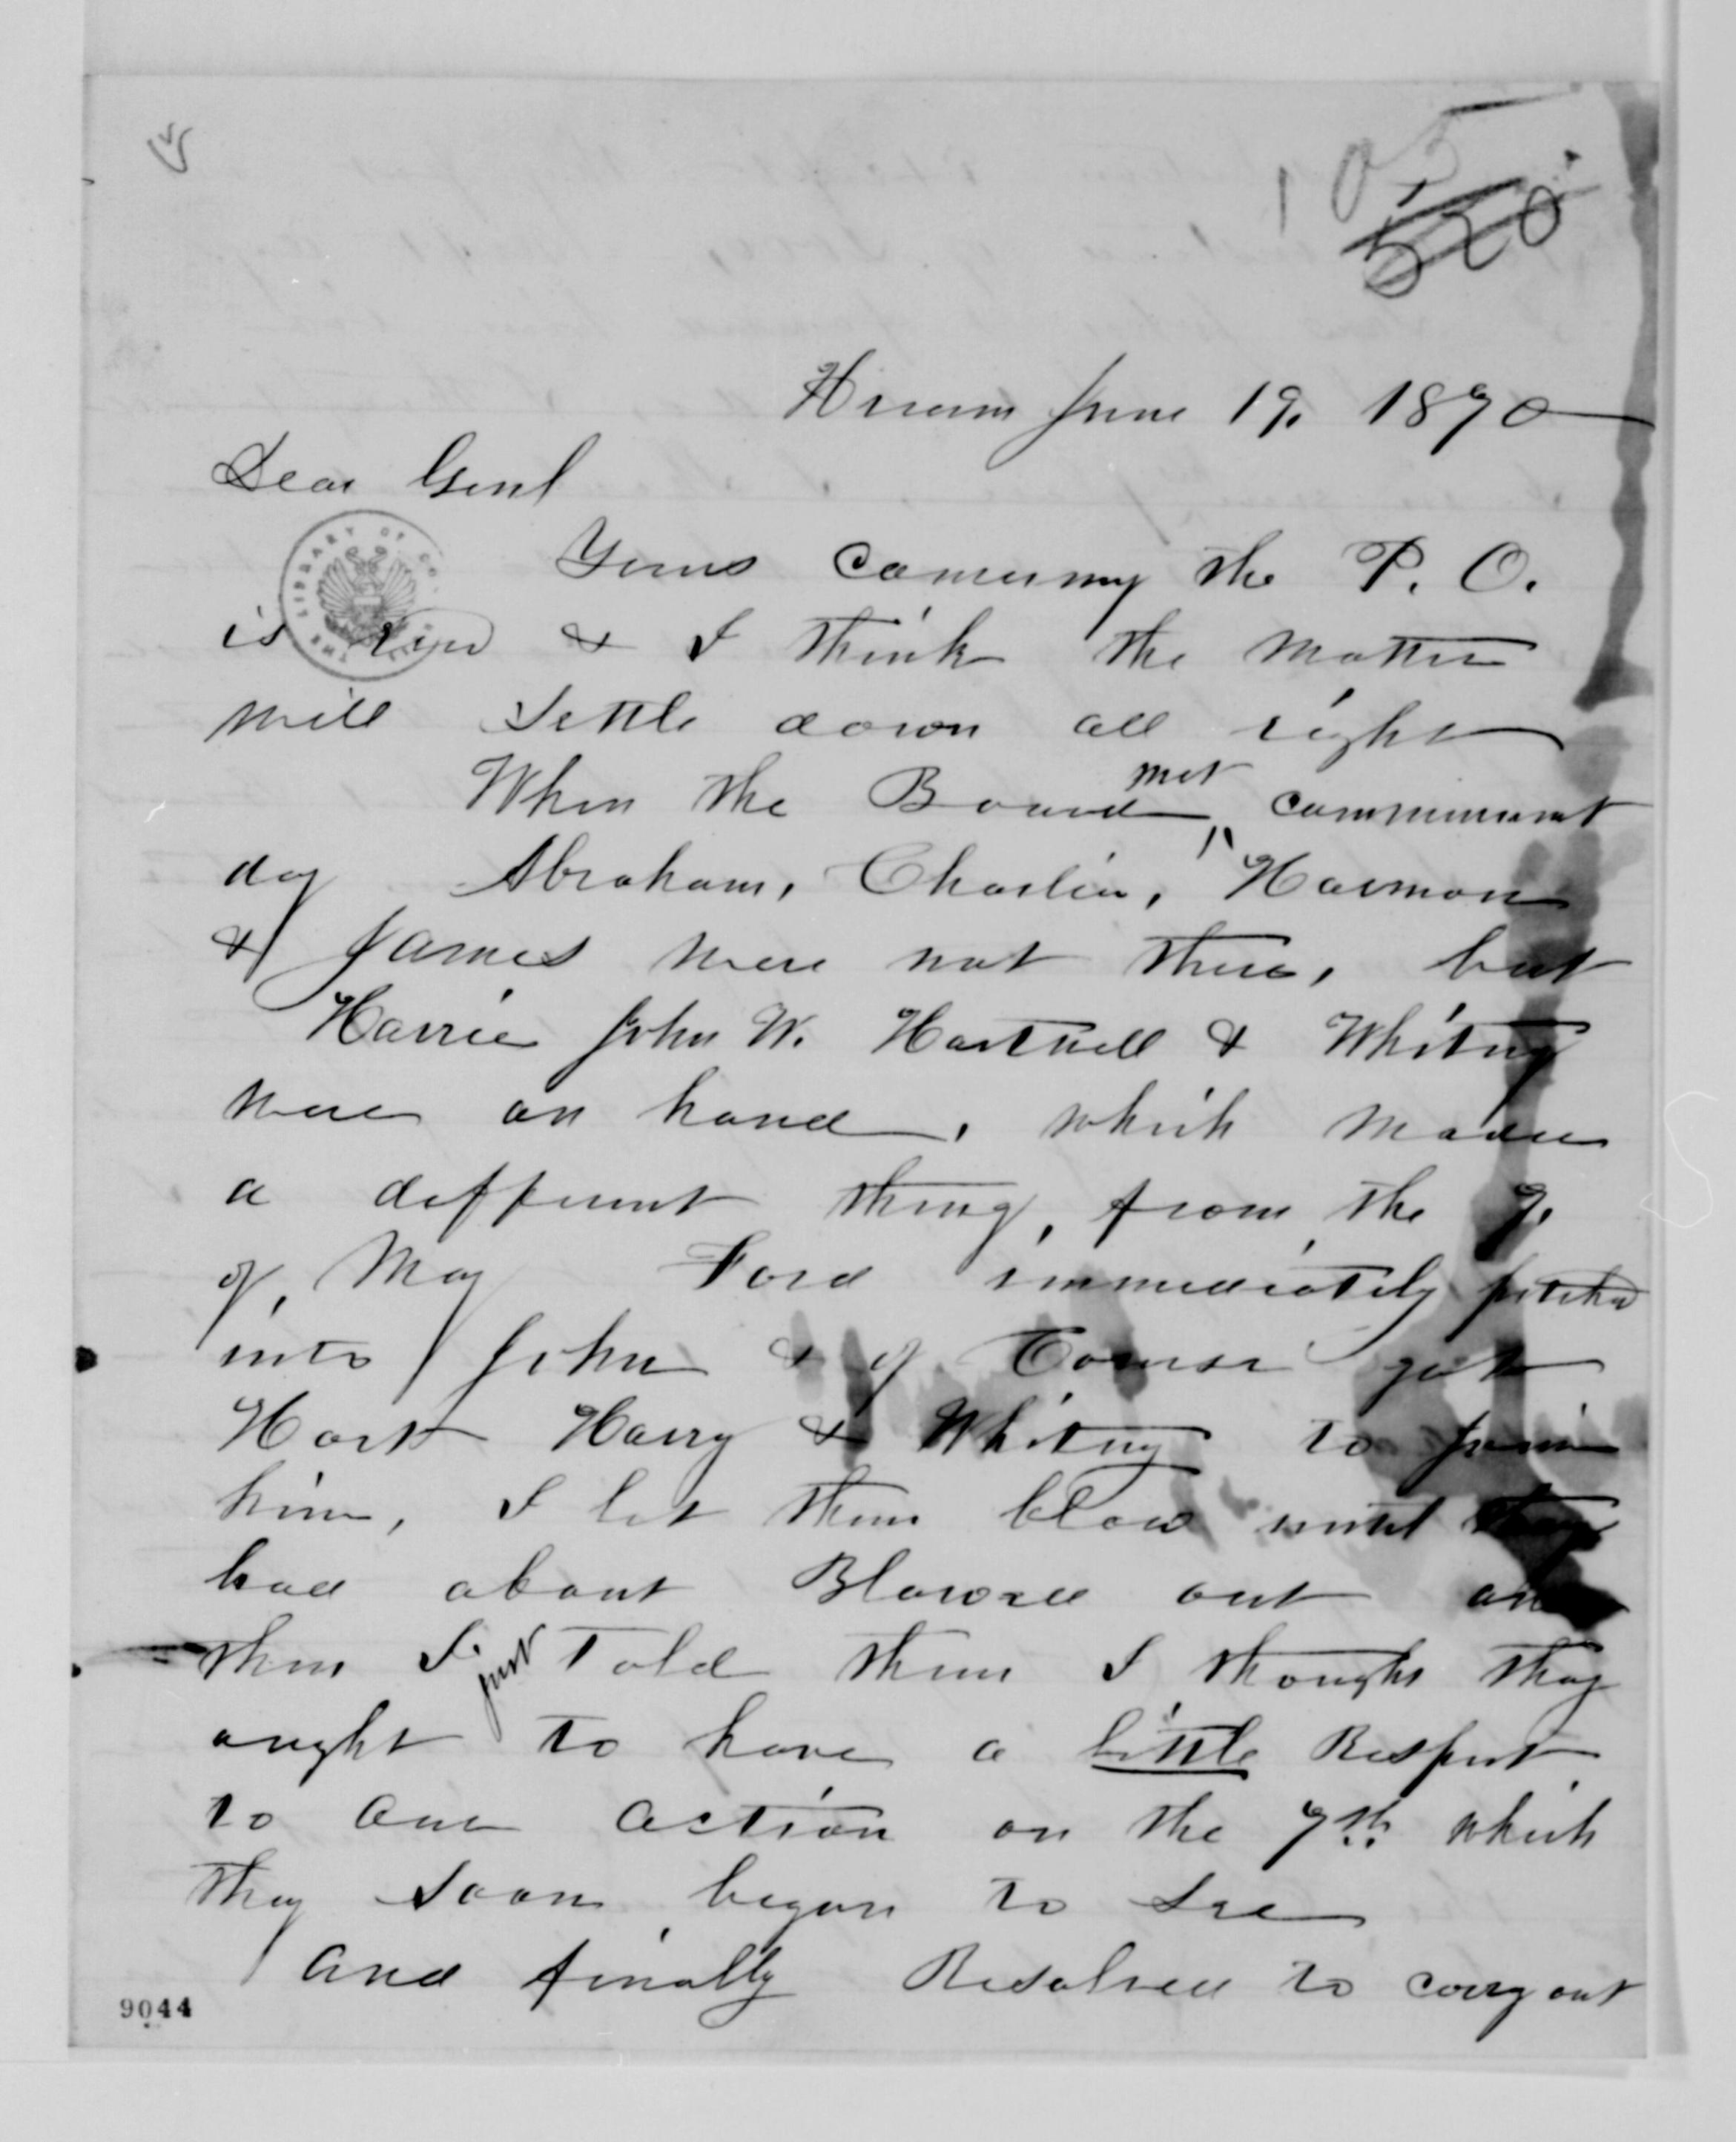 105
520
Hiram June 19. 1870
Dear Genl
Yours concerning the P. O.
is & I think the matter
will settle down all right
When the Board met commencement
day Abraham, Charlie, Harmon
& James were not there, but
Harrie John W. Hartzell & Whitney
were on hand, which made
a different thing, from the 7.
of, May Ford immediately pitched
into John & of Course got
Hart Harry & Whitney to join
him, I let them blow until they
had about Blowed out and
then I just Told them I thought they
ought to have a little Respect
to our action on the 7th which
they soon began to see
and finally Resolved to carry out
9044
LIBRARY OF
THE